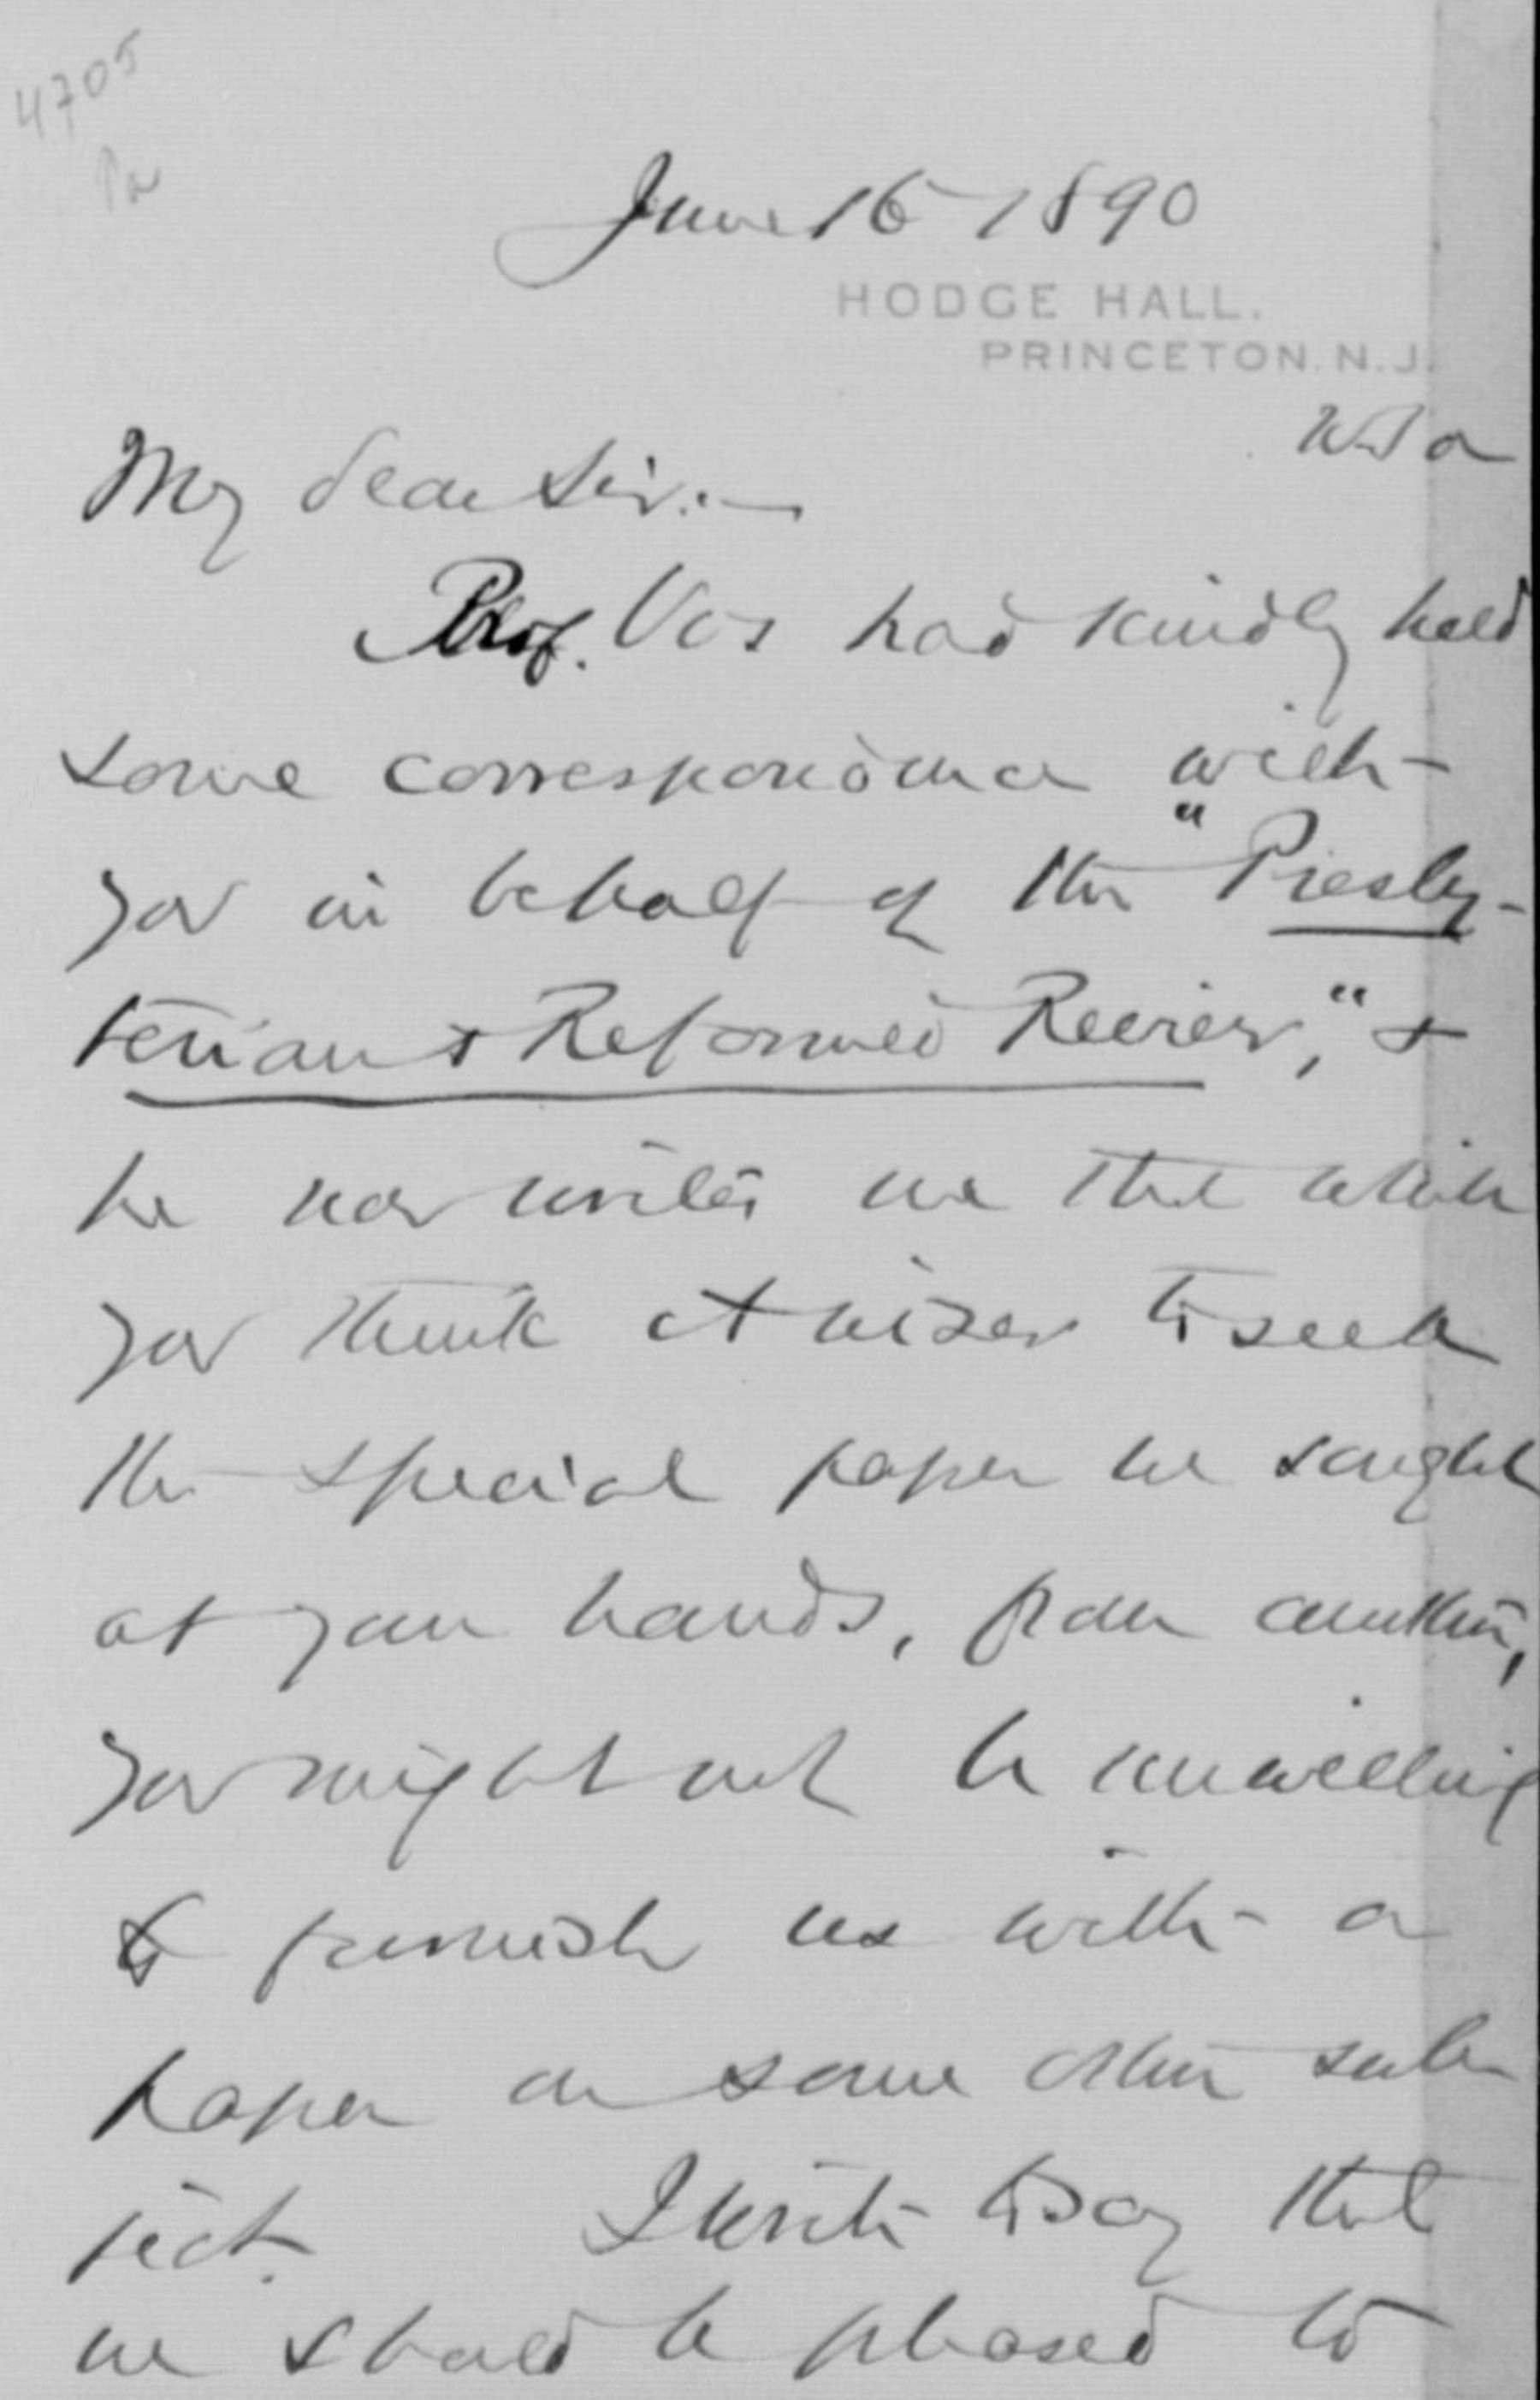 4705
Pa
June 16 1890
HODGE HALL.
PRINCETON. N. J.
My dear Sir:—
Prof. Vos had kindly held
some correspondence with
you in behalf of the "Presby-
terian & Reformed Review," &
he now writes me that while
you think it wiser to seek
the special paper he sought
at your hands, from another,
you might not be unwilling
to furnish us with a
paper on some other sub-
ject. I write to say that
we should be pleased to